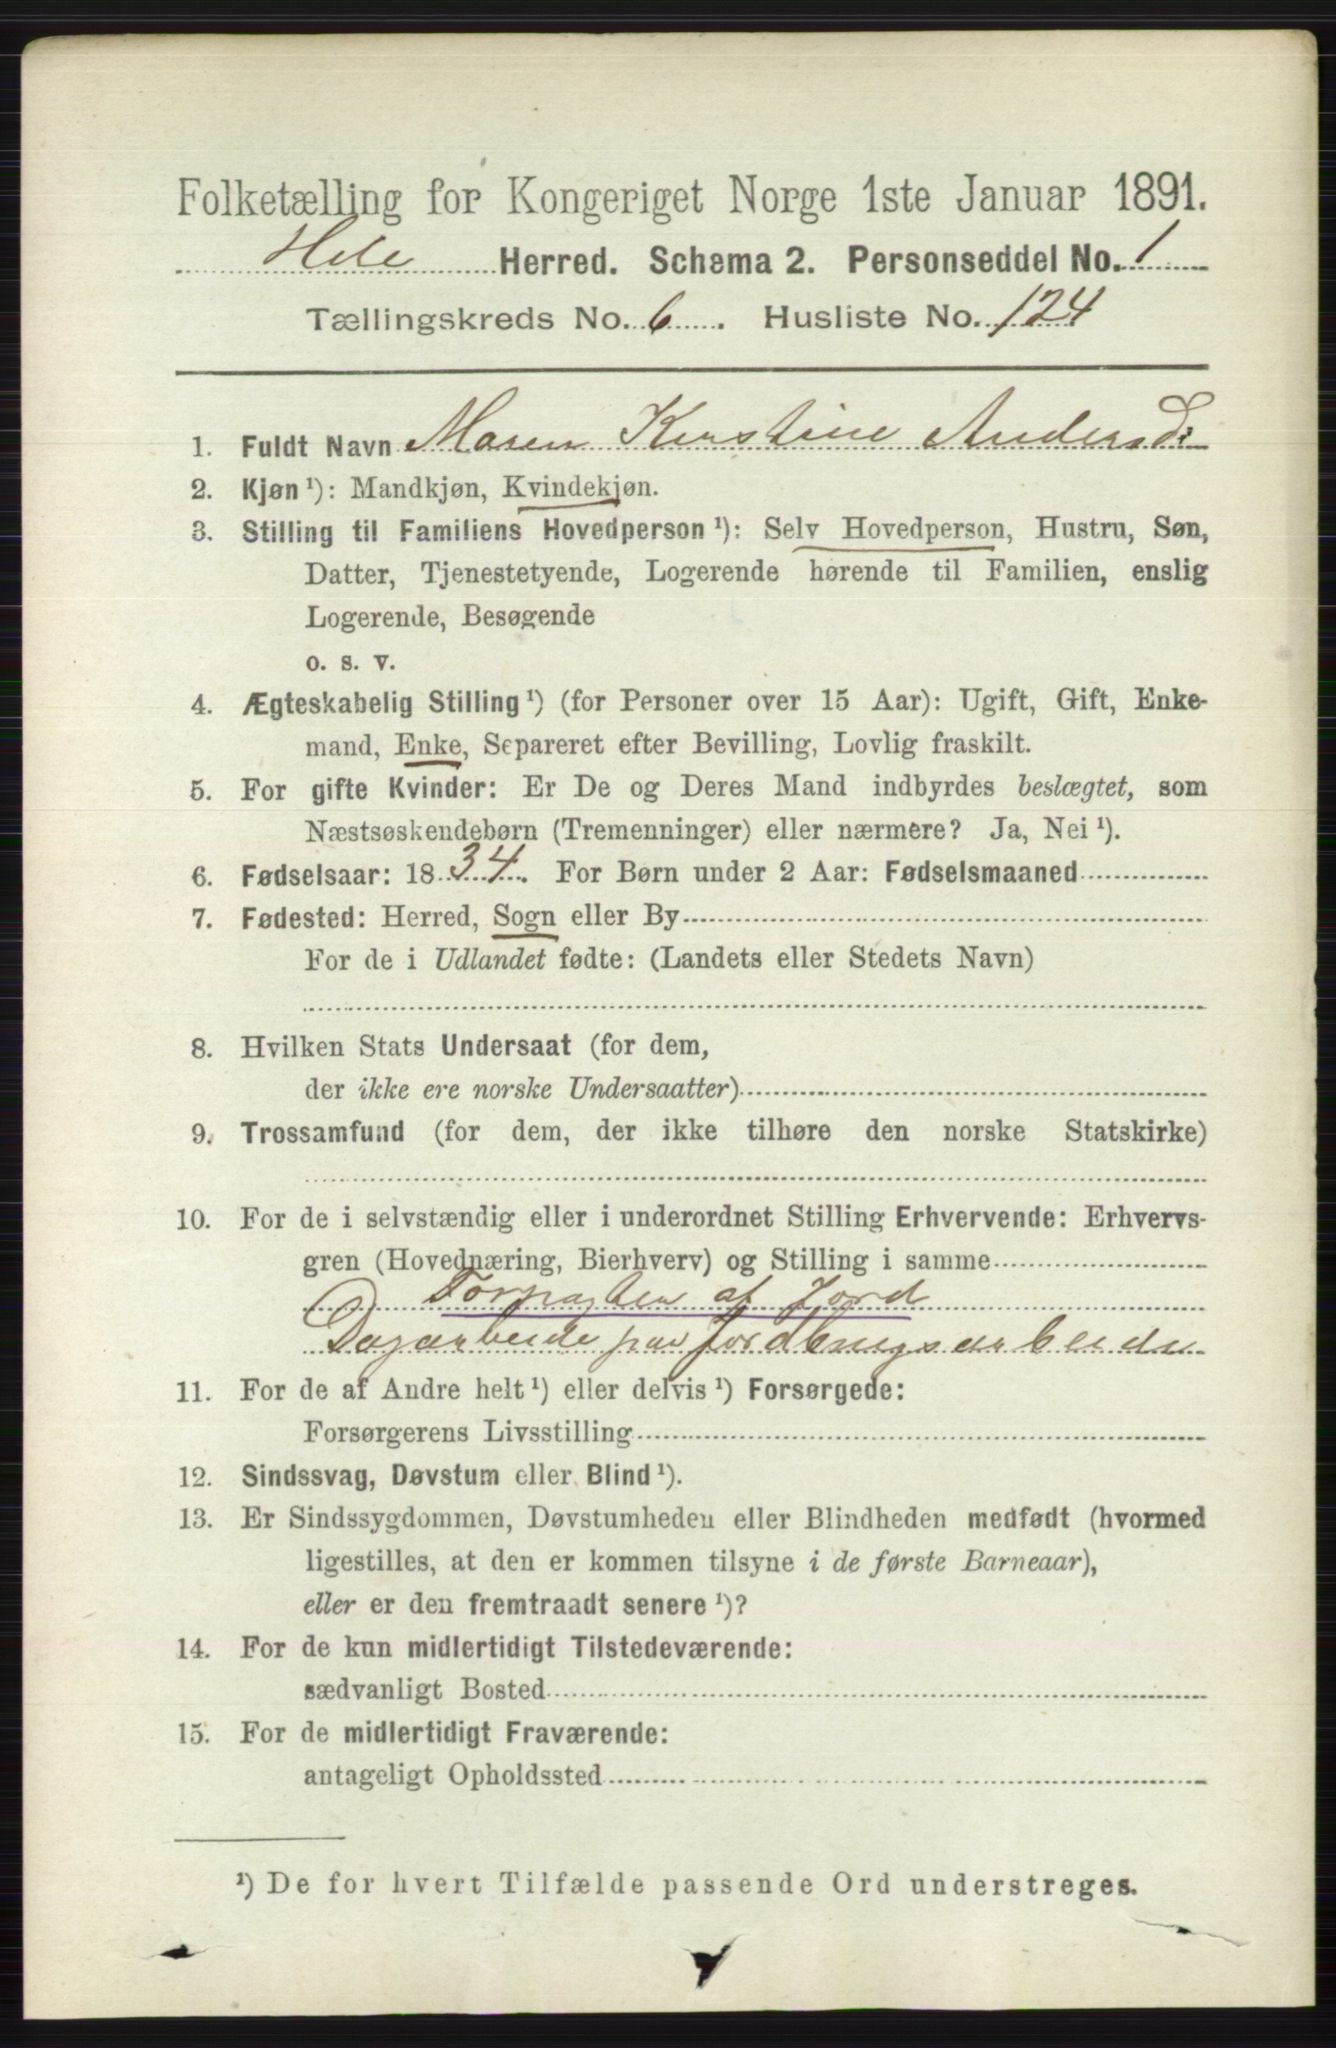 Folketælling for Kongeriget Norge 1ste Januar 1891.
Hole Herred. Schema 2. Personseddel No. 1
Tællingskreds No. 6. Husliste No. 124
1. Fuldt Navn Maren Kirstine Andersd:
2. Kjøn ¹): Mandkjøn, Kvindekjøn.
3. Stilling til Familiens Hovedperson ¹): Selv Hovedperson, Hustru, Søn,
Datter, Tjenestetyende, Logerende hørende til Familien, enslig
Logerende, Besøgende
o. s. v.
4. Ægteskabelig Stilling ¹) (for Personer over 15 Aar): Ugift, Gift, Enke-
mand, Enke, Separeret efter Bevilling, Lovlig fraskilt.
5. For gifte Kvinder: Er De og Deres Mand indbyrdes beslægtet, som
Næstsøskendebørn (Tremenninger) eller nærmere? Ja, Nei ¹).
6. Fødselsaar: 1834. For Børn under 2 Aar: Fødselsmaaned
7. Fødested: Herred, Sogn eller By
For de i Udlandet fødte: (Landets eller Stedets Navn)
8. Hvilken Stats Undersaat (for dem,
der ikke ere norske Undersaatter)
9. Trossamfund (for dem, der ikke tilhøre den norske Statskirke)
10. For de i selvstændig eller i underordnet Stilling Erhvervende: Erhvervs-
gren (Hovednæring, Bierhverv) og Stilling i samme
Forpagter af Jord
Dagarbeide paa Jordbrugsarbeide
11. For de af Andre helt ¹) eller delvis ¹) Forsørgede:
Forsørgerens Livsstilling
12. Sindssvag, Døvstum eller Blind ¹).
13. Er Sindssygdommen, Døvstumheden eller Blindheden medfødt (hvormed
ligestilles, at den er kommen tilsyne i de første Barneaar),
eller er den fremtraadt senere ¹)?
14. For de kun midlertidigt Tilstedeværende:
sædvanligt Bosted
15. For de midlertidigt Fraværende:
antageligt Opholdssted
¹) De for hvert Tilfælde passende Ord understreges.